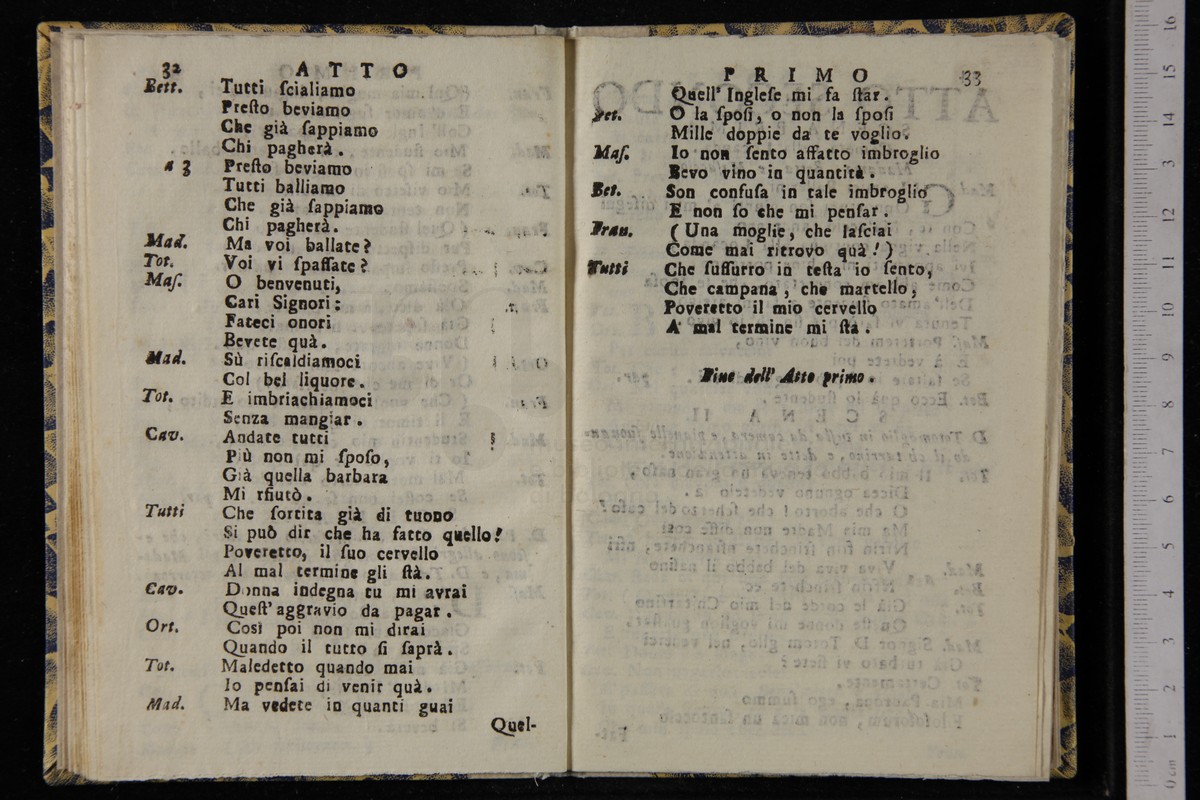 32 ATTO
Bett. Tutti ſcialiamo
Preſto beviamo
Che già ſappiamo
Chi pagherà.
a 3 Preſto beviamo
Tutti balliamo
Che già ſappiamo
Chi pagherà.
Mad. Ma voi ballate?
Tot. Voi vi ſpaſſate?
Maſ. O benvenuti,
Cari Signori:
Fateci onori
Bevete quà.
Mad. Sù riſcaldiamoci
Col bel liquore.
Tot. E imbriachiamoci
Senza mangiar.
Cav. Andate tutti
Più non mi ſpoſo,
Già quella barbara
Mi rfiutò.
Tutti Che ſortita già di tuono
Si può dir che ha fatto quello!
Poveretto, il ſuo cervello
Al mal termine gli ſtà.
Cav. Donna indegna tu mi avrai
Queſt' aggravio da pagar.
Ort. Così poi non mi dirai
Quando il tutto ſi ſaprà.
Tot. Maledetto quando mai
Io penſai di venir quà.
Mad. Ma vedete in quanti guai
Quel-
PRIMO 33
Quell' Ingleſe mi fa ſtar.
Pet. O la ſpoſi, o non la ſpoſi
Mille doppie da te voglio.
Maſ. Io non ſento affatto imbroglio
Bevo vino in quantità.
Bet. Son confuſa in tale imbroglio
E non ſo che mi penſar.
Fran. (Una moglie, che laſciai
Come mai ritrovo quà!)
Tutti Che ſuſſurro in teſta io ſento,
Che campana, che martello,
Poveretto il mio cervello
A' mal termine mi ſtà.
Fine dell' Atto primo.